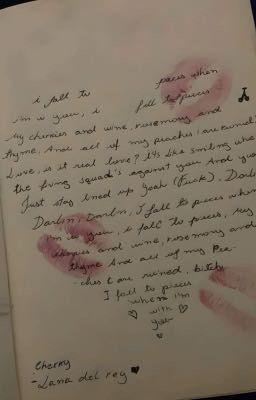 i fall to pieces when
i'm w you, i fall to pieces
My cherries and wine, rosemary and
thyme. And all of my peaches (are ruined)
Love, is it real love? It's like smiling whe
the firing squad's against you And you
Just stay lined up yeah (Fuck), Darli
Darlin, Darlin, I fall to pieces when
i'm w you, i fall to pieces, My
cherries and wine, rosemary and
thyme And all of my Pea-
-ches (are ruined, bitch
I fall to pieces
when i'm
with
you
Cherry
- Lana del rey